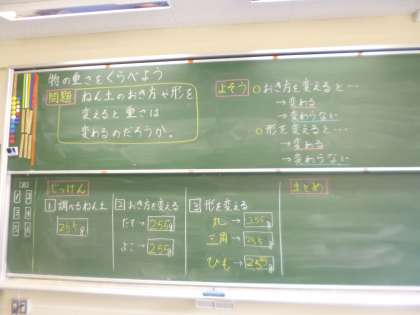 物の重さをくらべよう
問題 ねん土のおき方や形を
変えると重さは
変わるのだろうか。
よそう
○おき方を変えると…
→変わる
→変わらない
○形を変えると…
→変わる
→変わらない
じっけん
1 調べるねん土
255g
2 おき方を変える
たて→255g
よこ→255g
3 形を変える
丸→255g
三角→255g
ひも→255g
まとめ